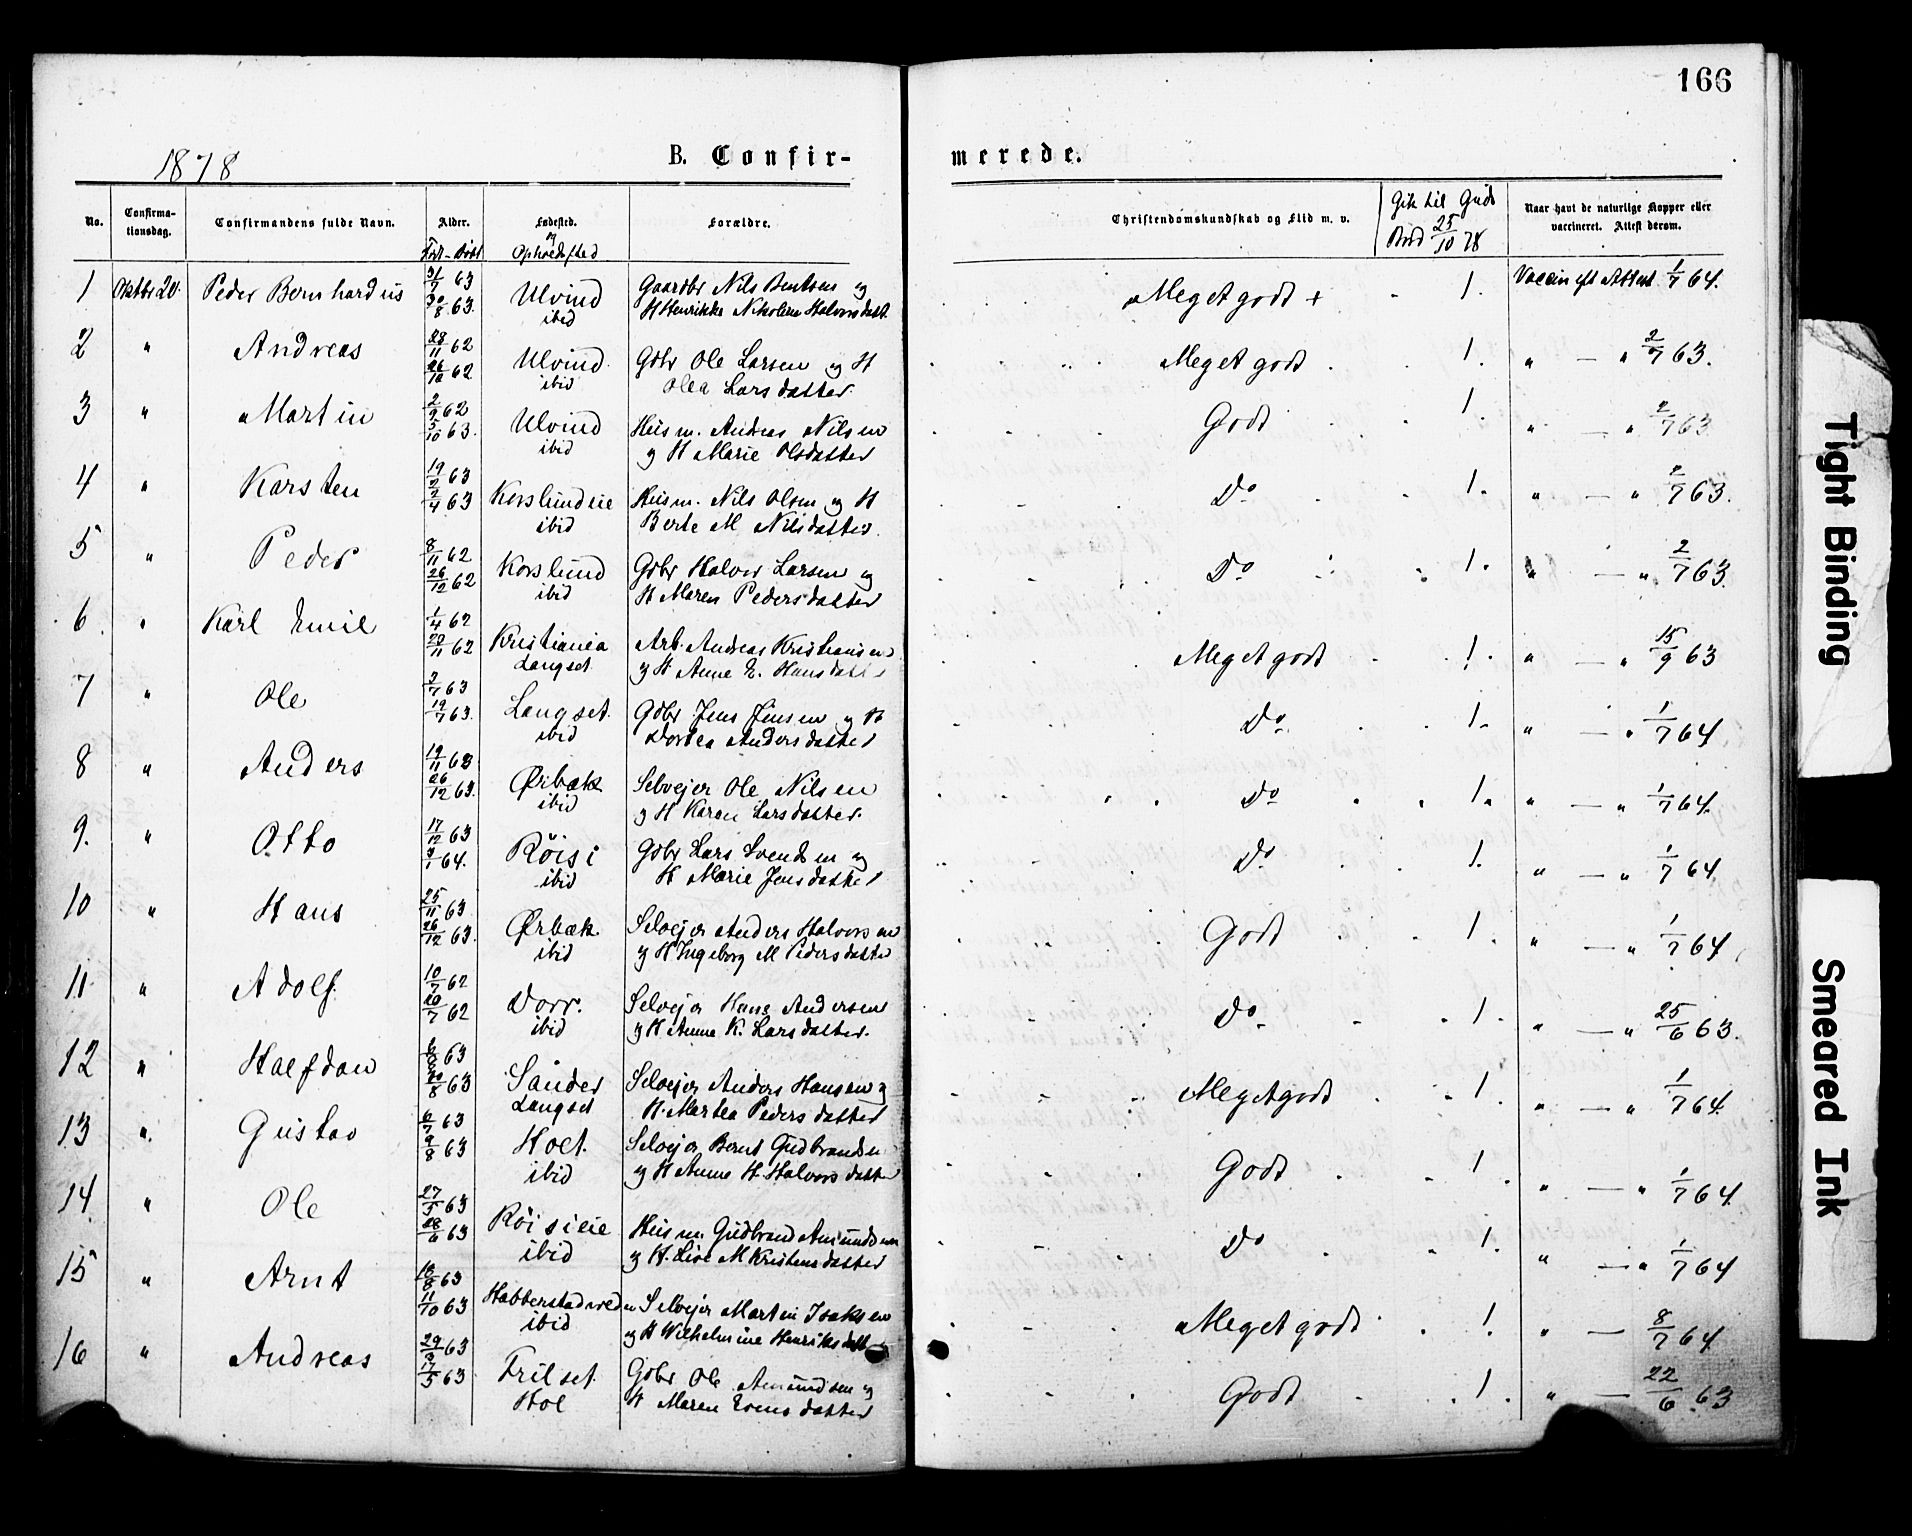 166
1878
B. Confir-
merede.
No.
Confirma-
tionsdag.
Confirmandens fulde Navn.
Alder.
Født - Døbt
Fødested.
og
Opholdssted
Forældre.
Christendomskundskab og Flid m. v.
Gik til Guds
Bord 25/10 78
Naar havt de naturlige Kopper eller
vaccineret. Attest derom.
1 Oktbr 20. Peder Bernhardus 31/7 63 30/8 63. Ulvind ibid Gaardbr Nils Bentsen og
H Henrikke Nikoline Halvorsdatt. Meget godt + 1. Vaccin eft Attest 1/7 64.
2 " Andreas 28/11 62 26/12 62 Ulvind ibid Gdbr Ole Larsen og H
Olea Larsdatter. Meget godt 1. " — " 2/7 63.
3 " Martin 2/9 62 5/10 63. Ulvind ibid Husm. Andreas Nilsen
og H Marie Olsdatter Godt 1. " — " 2/7 63
4 " Karsten 19/2 63 2/4 63 Korslundeie ibid Husm. Nils Olsen og H
Berte M Nilsdatter. Do 1. " — " 2/7 63.
5 " Peder 8/11 62 26/12 62 Korslund ibid Gdbr Halvor Larsen og
H Maren Pedersdatter Do 1. " — " 2/7 63.
6. " Karl Emil 1/4 62 20/11 62 Kristiania Langset Arb. Andreas Kristiansen
og H Anne E. Hansdatt Meget godt 1. " — " 15/9 63
7 " Ole 2/7 63 19/7 63. Langset. ibid Gdbr Jens Jensen og H
Dortea Andersdatter Do. 1. " — " 1/7 64.
8 " Anders 19/11 63 26/12 63. Ørbæk ibid Selvejer Ole Nilsen
og H Karen Larsdatter. Do 1. " — " 1/7 64.
9. " Otto 17/12 63 /1 64. Röisi ibid Gdbr Lars Svendsen og
H Marie Jensdatter Do 1. " — " 1/7 64
10 " Hans 25/11 63 26/12 63. Ørbæk ibid Selvejer Anders Halvorsen
og H Ingeborg M Pedersdatter Godt 1. " — " 1/7 64
11 " Adolf 10/7 62 20/7 62 Dorr. ibid Selvejer Hans Andersen
og H Anne K. Larsdatter. Do 1. " — " 25/6 63.
12 " Halfdan 63 30/8 63 Sander Langset Selvejer Anders Hansen og
H. Martea Pedersdatter Meget godt 1. " — " 1/7 64.
13 " Gustav 6/7 63 9/8 63 Hol. ibid Selvejer Bernt Gudbrandsen
og H Anne H Halvorsdatter Godt 1 " — " 1/7 64.
14 " Ole 27/5 63 28/6 63 Röisieie ibid Husm. Gudbrand Amundsen
og H. Lise M Kristensdatter Do 1. " — " 1/7 64
15 " Arnt 18/8 63 11/10 63 Habberstadveden ibid Selvejer Martin Isaksen
og H Wilhelmine Henriksdatt Meget godt 1. " — 8/7 64
16 " Andreas 29/3 63 17/5 63 Frilset Hol Gdbr Ole Amundsen og
H Maren Evensdatter Godt 1. " — 22/6 63
Tight Binding
Smeared Ink